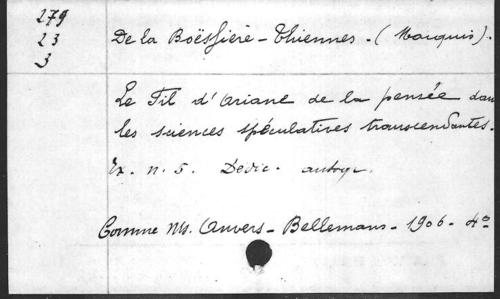 279
23
3
De la Boëssiere - Thiennes. (Marquis).
Le Fil d'Ariane de la pensée dans
les sciences spéculatives transcendantes.
Ex. n. 5. Dédic. autogr.
Comme Ms. Anvers - Bellemans - 1906 - 4º